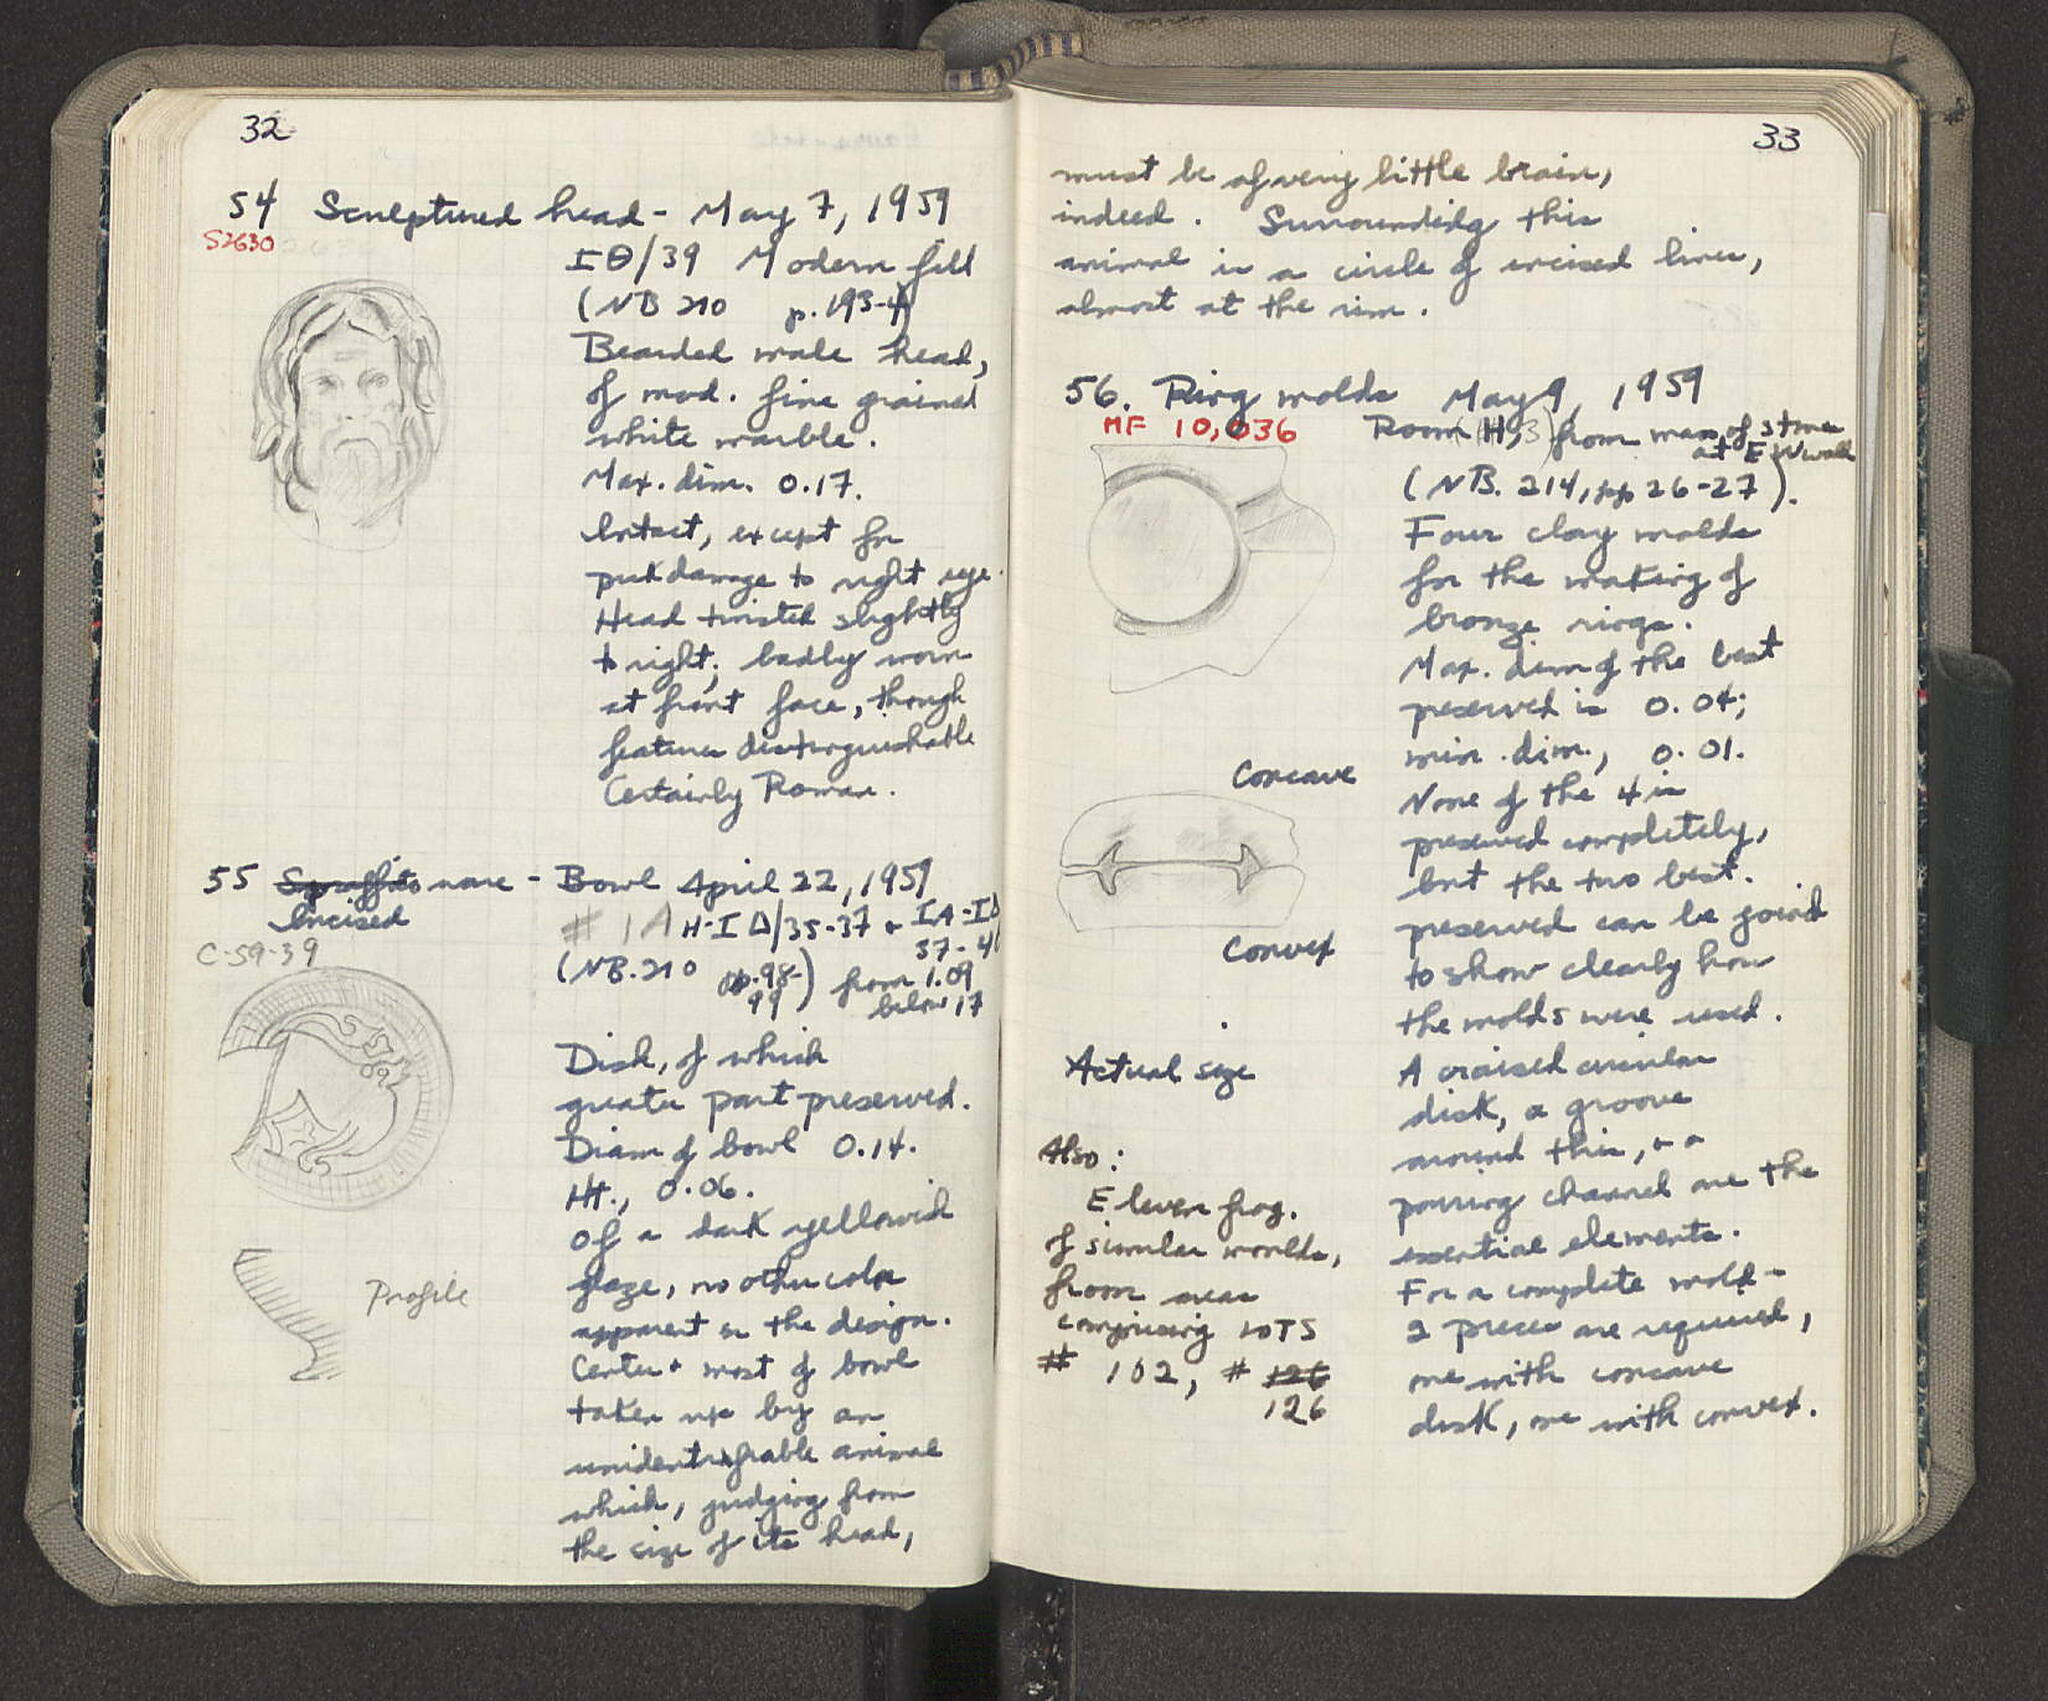 32
54 Sculptured head - May 7, 1959
S2630
ΙΘ/39 Modern fill
(NB 210 p. 193-4)
Bearded male head,
of med. fine grained
white marble.
Max. dim. 0.17.
Intact, except for
pick damage to right eye.
Head twisted slightly
to right; badly worn
at front face, though
features distinguishable
Certainly Roman.
55 Sgraffito ware - Bowl April 22, 1959
Incised
C-59-39
# 1A H-IΔ/35-37 + IA-IΔ
37-41
(NB. 210 pp. 98-99) from 1.09
below 17
Disk, of which
greater part preserved.
Diam of bowl 0.14.
Ht., 0.06.
Of a dark yellowish
glaze, no other color
apparent in the design.
Center + most of bowl
taken up by an
unidentifiable animal
which, judging from
the size of its head,
Profile
33
must be of very little brain,
indeed. Surrounding this
animal is a circle of incised lines,
almost at the rim.
56. Ring molds May 9, 1959
MF 10,036
Room H, 3) from mass of stones
at E wall
(NB. 214, pp 26-27).
Four clay molds
for the making of
bronze rings.
Max. dim of the best
preserved is 0.04;
min. dim., 0.01.
None of the 4 is
preserved completely,
but the two best.
preserved can be joined
to show clearly how
the molds were used.
A raised circular
disk, a groove
around this, + a
pouring channel are the
essential elements.
For a complete mold -
2 pieces are required,
one with concave
disk, one with convex.
Concave
Convex
Actual size
Also:
Eleven frag.
of similar molds,
from area
comprising LOTS
# 102, # 126
126